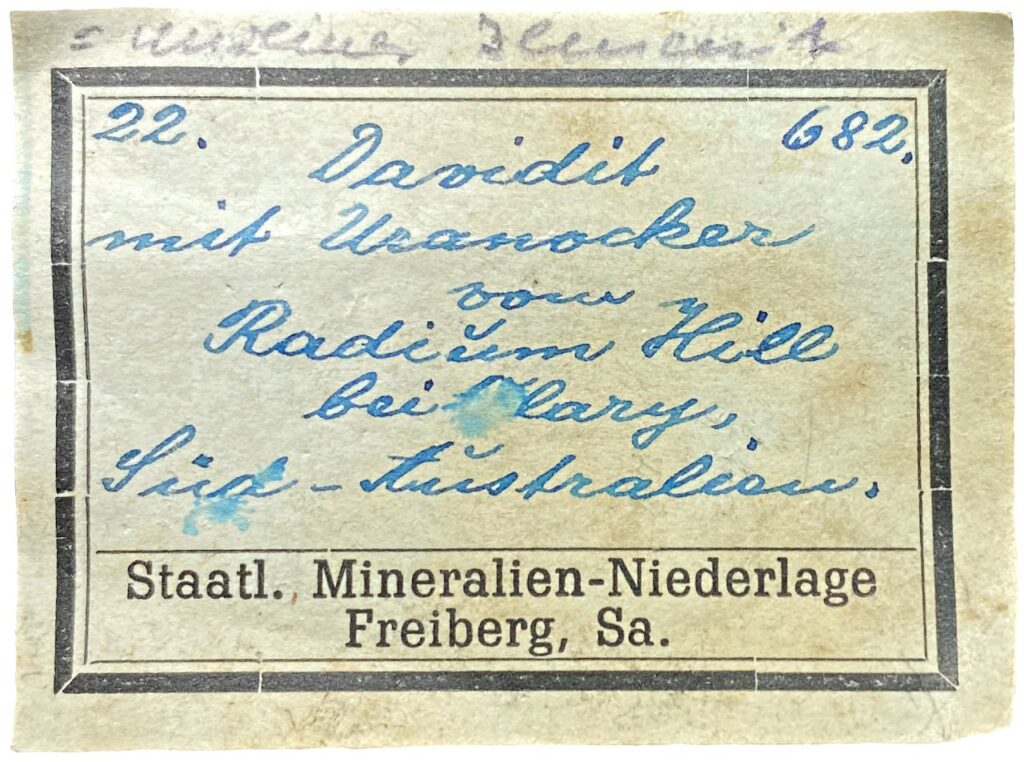 = unreiner Ilmenit
22. 682.
Davidit
mit Uranocker
vom
Radium Hill
bei Olary,
Süd-Australien.
Staatl. Mineralien-Niederlage
Freiberg, Sa.